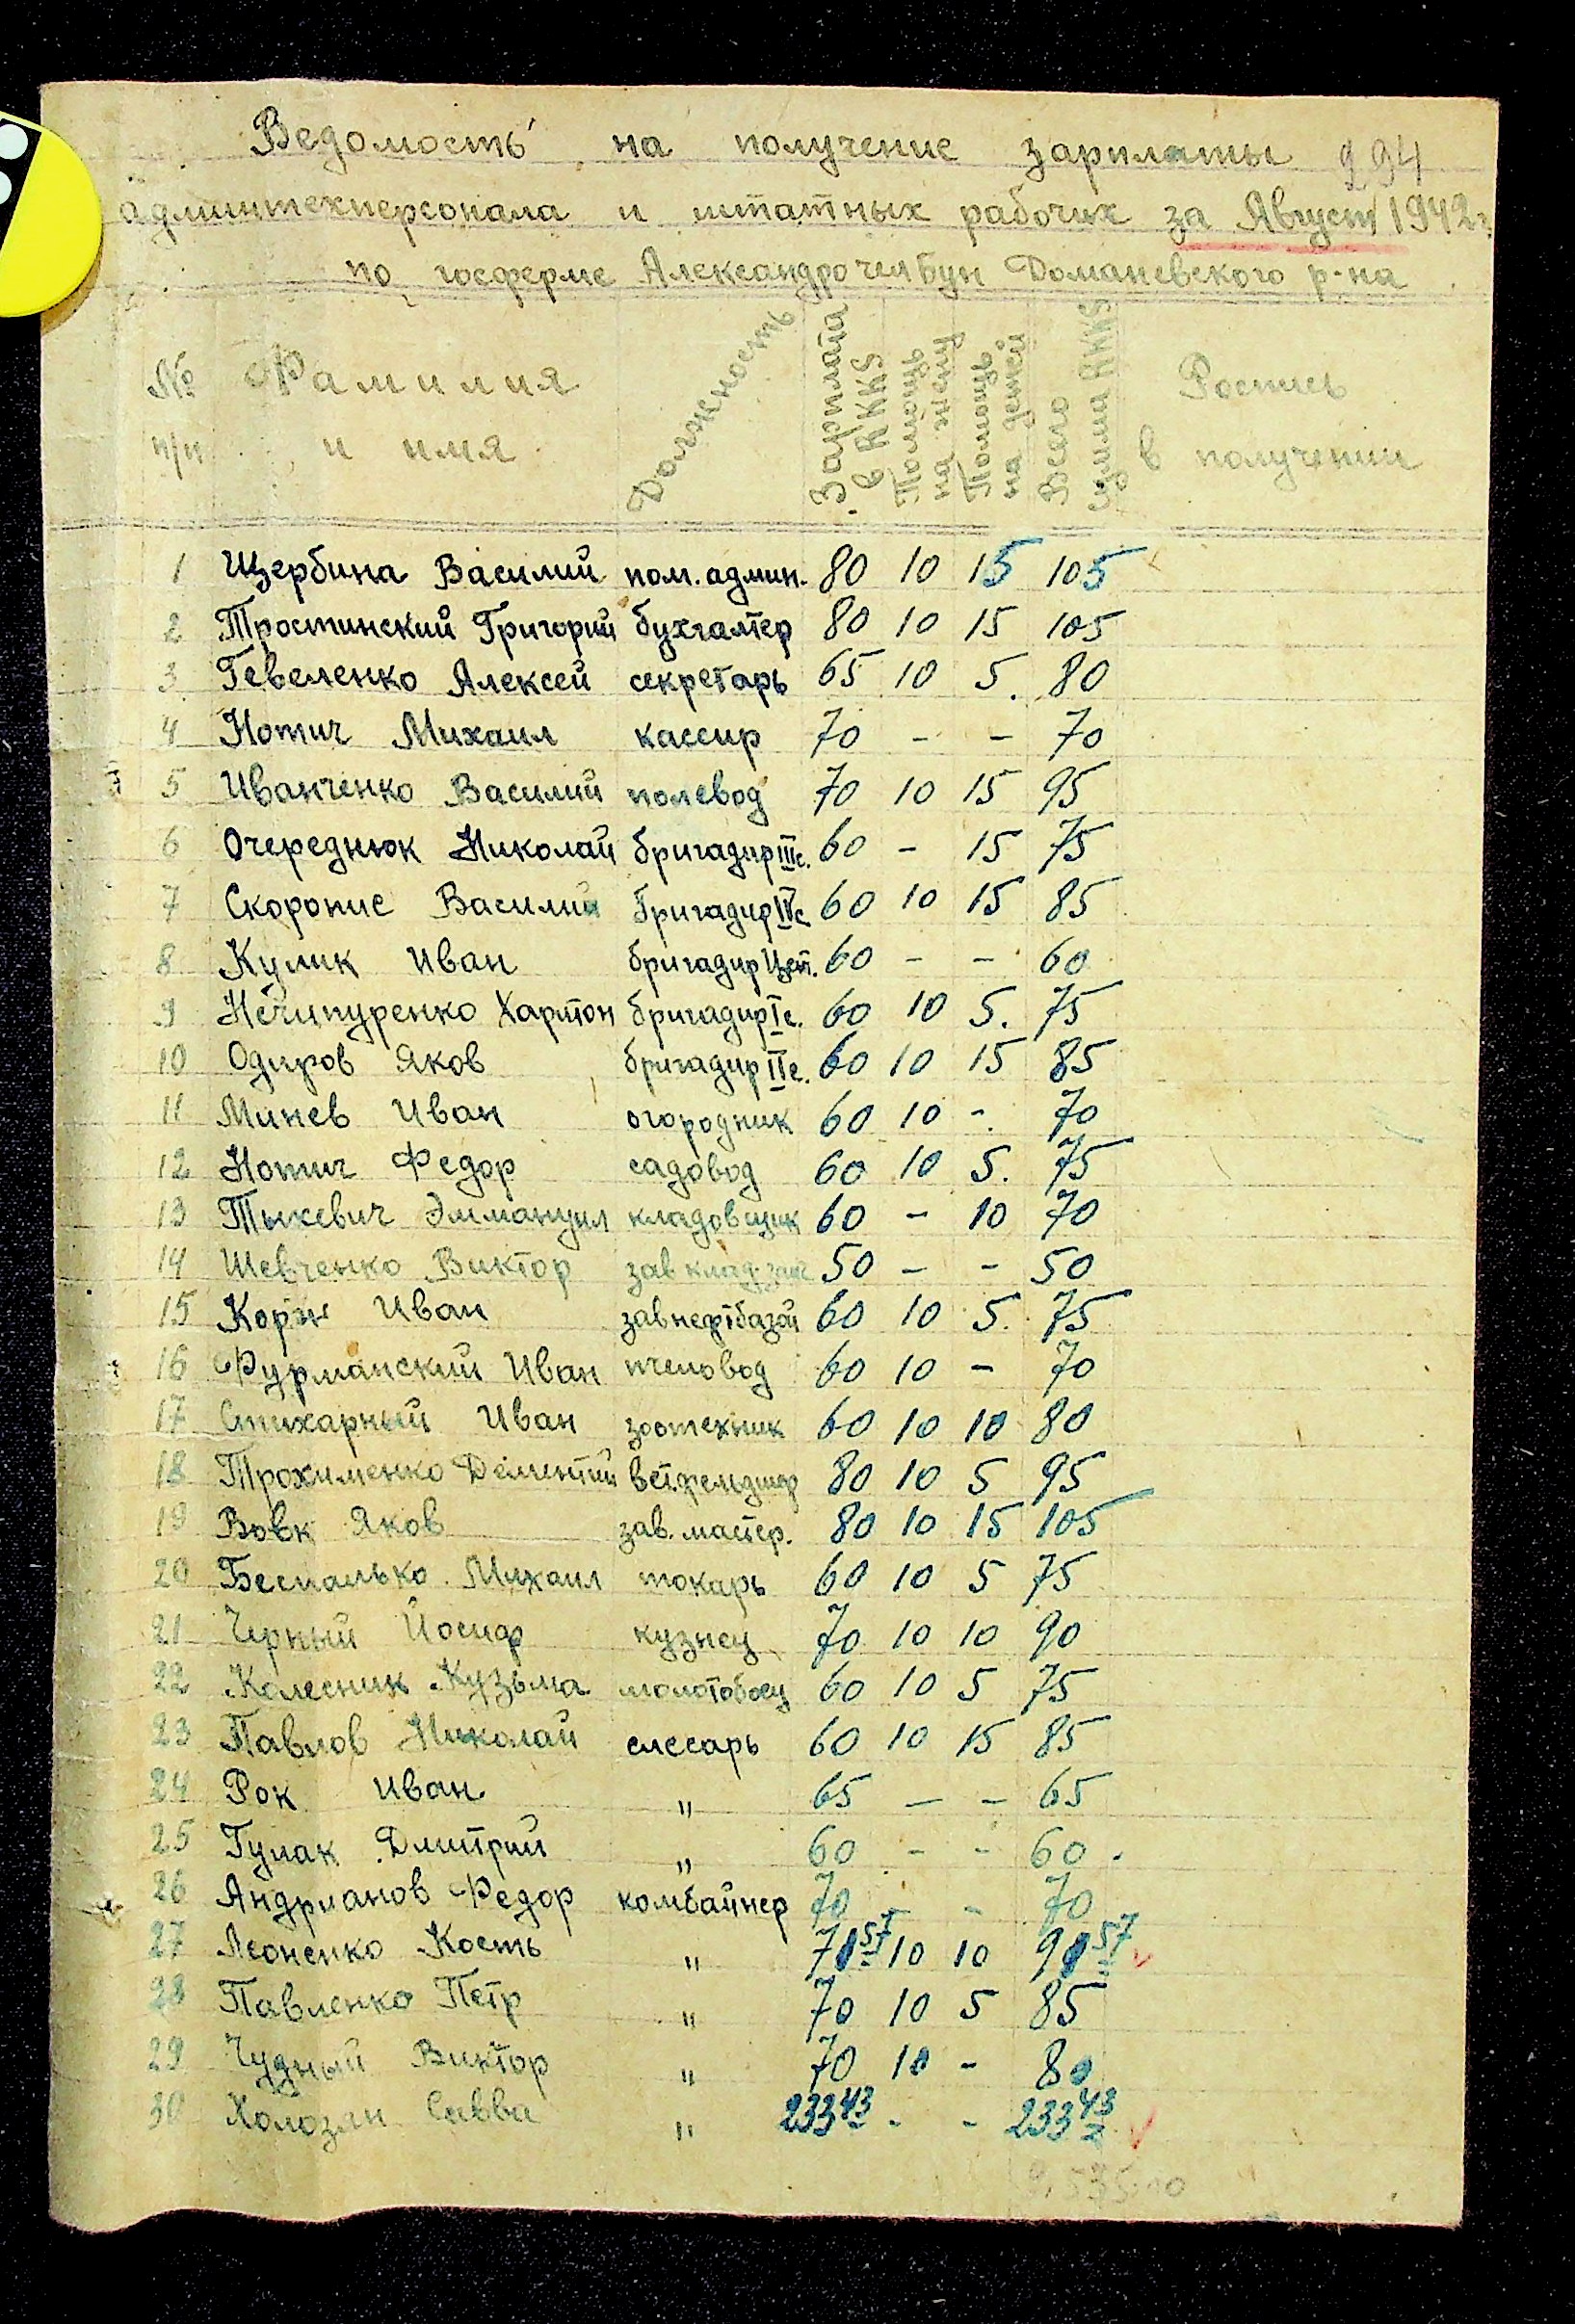 Ведомость на получение зарплаты 294
админтехперсонала и штатных рабочих за Август 1942 г.
по госферме Александрочелбун Доманевского р-на
№ п/п Фамилия и имя Должность Зарплата в RKKS Помощь на жену Помощь на детей Всего сумма RKKS Роспись в получении
1 Щербина Василий пом. админ. 80 10 15 105
2 Тростинский Григорий бухгалтер 80 10 15 105
3 Гевеленко Алексей секретарь 65 10 5. 80
4 Нотич Михаил кассир 70 - - 70
5 Иванченко Василий полевод 70 10 15 95
6 Очереднюк Николай бригадир IIIс. 60 - 15 75
7 Скоропис Василий бригадир IVс 60 10 15 85
8 Кулик Иван бригадир 60 - - 60
9 Нечипуренко Харитон бригадир Iс. 60 10 5. 75
10 Одиров Яков бригадир IIс. 60 10 15 85
11 Минев Иван огородник 60 10 - 70
12 Нотич Федор садовод 60 10 5. 75
13 Тыхевич Эммануил кладовщик 60 - 10 70
14 Шевченко Виктор зав клад. 50 - - 50
15 Корж Иван завнефтбазой 60 10 5. 75
16 Фурманский Иван пчеловод 60 10 - 70
17 Стихарный Иван зоотехник 60 10 10 80
18 Трохименко Дементий ветфельдшер 80 10 5 95
19 Вовк Яков зав. мастер. 80 10 15 105
20 Беспалько Михаил токарь 60 10 5 75
21 Черный Йосиф кузнец 70 10 10 90
22 Колесник Кузьма молотобоец 60 10 5 75
23 Павлов Николай слесарь 60 10 15 85
24 Рок Иван " 65 - - 65
25 Гулак Дмитрий " 60 - - 60.
26 Андрианов Федор комбайнер 70 - - 70
27 Леоненко Кость " 71 57 10 10 91 57
28 Павленко Петр " 70 10 5 85
29 Чудный Виктор " 70 10 - 80
30 Холозян Савва " 233 43 - - 233 43